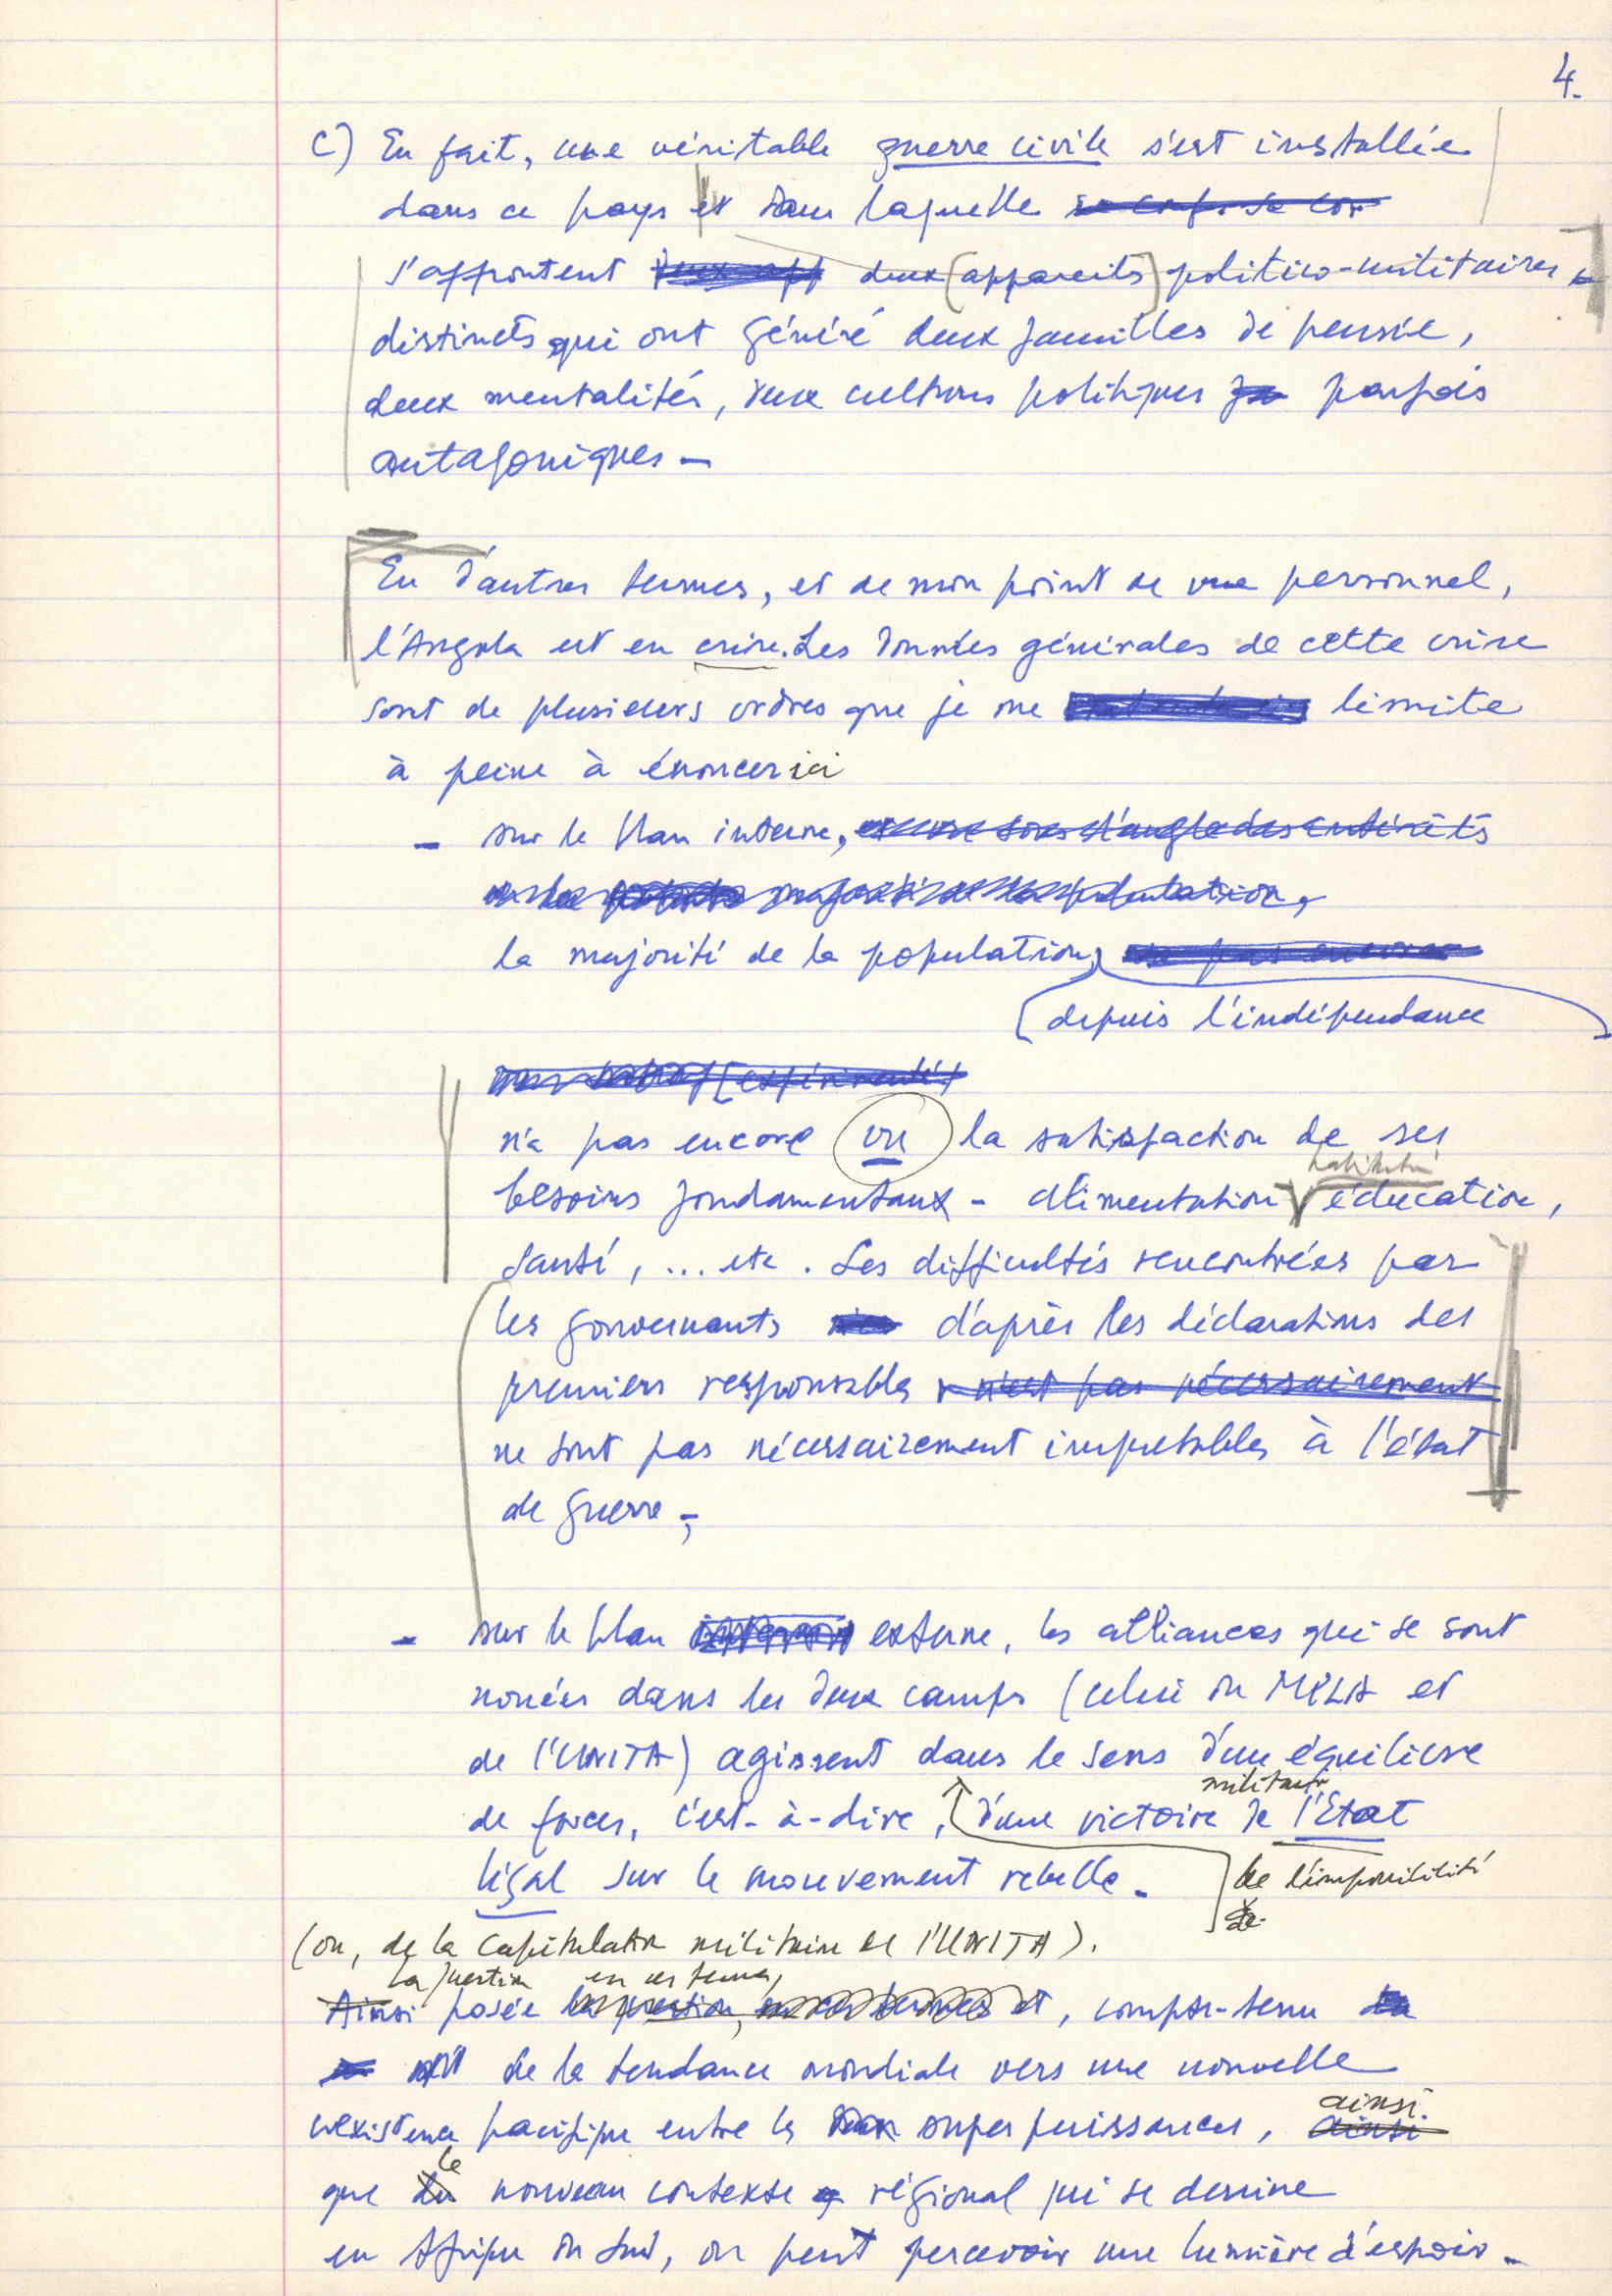 4.
C) En fait, une véritable guerre civile s'est installée
dans ce pays et dans laquelle
s'affrontent deux (appareils) politico-militaires
distincts qui ont généré deux familles de pensée,
deux mentalités, deux cultures politiques parfois
antagoniques -
En d'autres termes, et de mon point de vue personnel,
l'Angola est en crise. Les données générales de cette crise
sont de plusieurs ordres que je me limite
à peine à énoncer ici
- sur le plan interne, encore sous l'angle des intérêts
de la majorité de la population,
la majorité de la population, pas encore
(depuis l'indépendance
(expérimenté)
n'a pas encore vu la satisfaction de ses
besoins fondamentaux - alimentation éducation,
santé, ... etc. Les difficultés rencontrées par
les gouvernants d'après les déclarations des
premiers responsables n'est pas nécessairement
ne sont pas nécessairement imputables à l'état
de guerre -,
- sur le plan externe, les alliances qui se sont
nouées dans les deux camps (celui du MPLA et
de l'UNITA) agissent dans le sens d'un équilibre
militaire
de forces, c'est-à-dire, d'une victoire de l'Etat
légal sur le mouvement rebelle.
de l'impossibilité
de
(ou, de la capitulation militaire de l'UNITA).
la question en ces termes,
Ainsi posée la question, en ces termes et, compte-tenu
de la tendance mondiale vers une nouvelle
coexistence pacifique entre les super puissances, ainsi
ainsi
que du le nouveau contexte régional qui se dessine
en Afrique du Sud, on peut percevoir une lumière d'espoir -